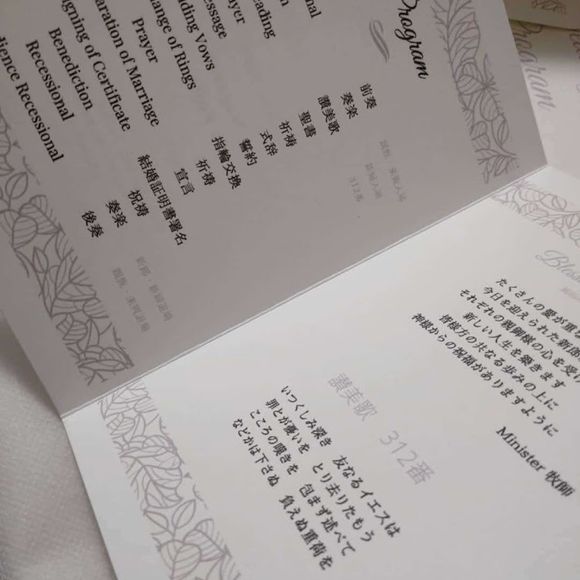 Program
ading
ayer
essage
ding Vows
rayer
ange of Rings
Prayer
aration of Marriage
gning of Certificate
Benediction
Recessional
dience Recessional
前奏
奏楽
讃美歌 312番
聖書
祈祷
式辞
誓約
指輪交換
祈祷
宣言
結婚証明書署名
祝祷
奏楽
後奏
たくさんの愛が重な
今日を迎えられた新郎
それぞれの親御様の心を受
新しい人生を築きます
皆様方の共なる歩みの上に
神様からの祝福がありますように
Minister 牧師
讃美歌 312番
いつくしみ深き 友なるイエスは
罪とが憂いを とり去りたもう
こころの嘆きを 包まず述べて
などかは下さぬ 負えぬ重荷を
Program